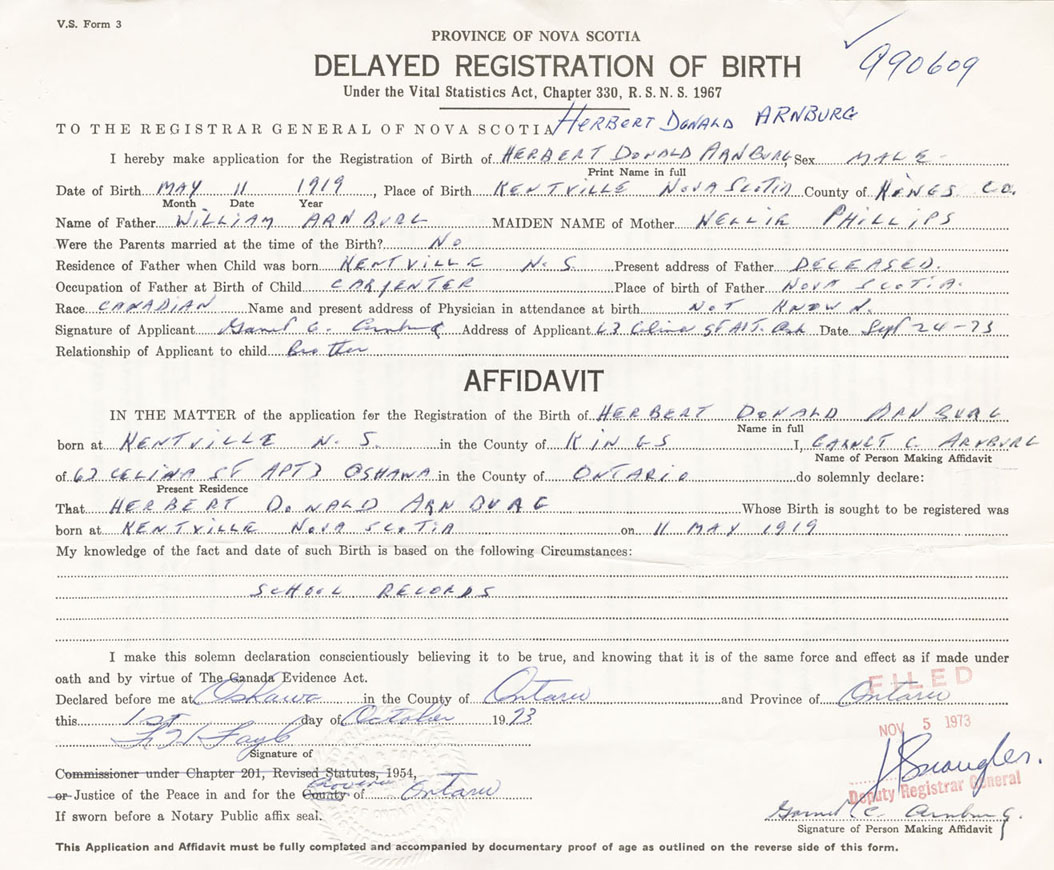 V.S. Form 3
PROVINCE OF NOVA SCOTIA
990609
DELAYED REGISTRATION OF BIRTH
Under the Vital Statistics Act, Chapter 330, R. S. N. S. 1967
TO THE REGISTRAR GENERAL OF NOVA SCOTIA HERBERT DONALD ARNBURG
I hereby make application for the Registration of Birth of HERBERT DONALD ARNBURG, Sex MALE
Print Name in full
Date of Birth MAY 11 1919, Place of Birth KENTVILLE NOVA SCOTIA County of KINGS CO.
Month Date Year
Name of Father WILLIAM ARNBURG MAIDEN NAME of Mother NELLIE PHILLIPS
Were the Parents married at the time of the Birth? NO
Residence of Father when Child was born KENTVILLE N. S. Present address of Father DECEASED.
Occupation of Father at Birth of Child CARPENTER Place of birth of Father NOVA SCOTIA.
Race CANADIAN Name and present address of Physician in attendance at birth NOT KNOWN.
Signature of Applicant Garnet C. Arnburg Address of Applicant 63 Celina ST Date Sept 24-73
Relationship of Applicant to child Brother
AFFIDAVIT
IN THE MATTER of the application for the Registration of the Birth of HERBERT DONALD ARNBURG
Name in full
born at KENTVILLE N. S. in the County of KINGS I, GARNET C. ARNBURG
Name of Person Making Affidavit
of 63 CELINA ST APT 3 OSHAWA in the County of ONTARIO do solemnly declare:
Present Residence
That HERBERT DONALD ARNBURG Whose Birth is sought to be registered was
born at KENTVILLE NOVA SCOTIA on 11 MAY 1919
My knowledge of the fact and date of such Birth is based on the following Circumstances:
SCHOOL RECORDS
I make this solemn declaration conscientiously believing it to be true, and knowing that it is of the same force and effect as if made under
oath and by virtue of The Canada Evidence Act.
FILED
Declared before me at Oshawa in the County of Ontario and Province of Ontario
this 1st day of October 1973
NOV 5 1973
Signature of
Commissioner under Chapter 201, Revised Statutes, 1954,
or Justice of the Peace in and for the County Province of Ontario
Deputy Registrar General
If sworn before a Notary Public affix seal.
Garnet C. Arnburg
Signature of Person Making Affidavit
This Application and Affidavit must be fully completed and accompanied by documentary proof of age as outlined on the reverse side of this form.